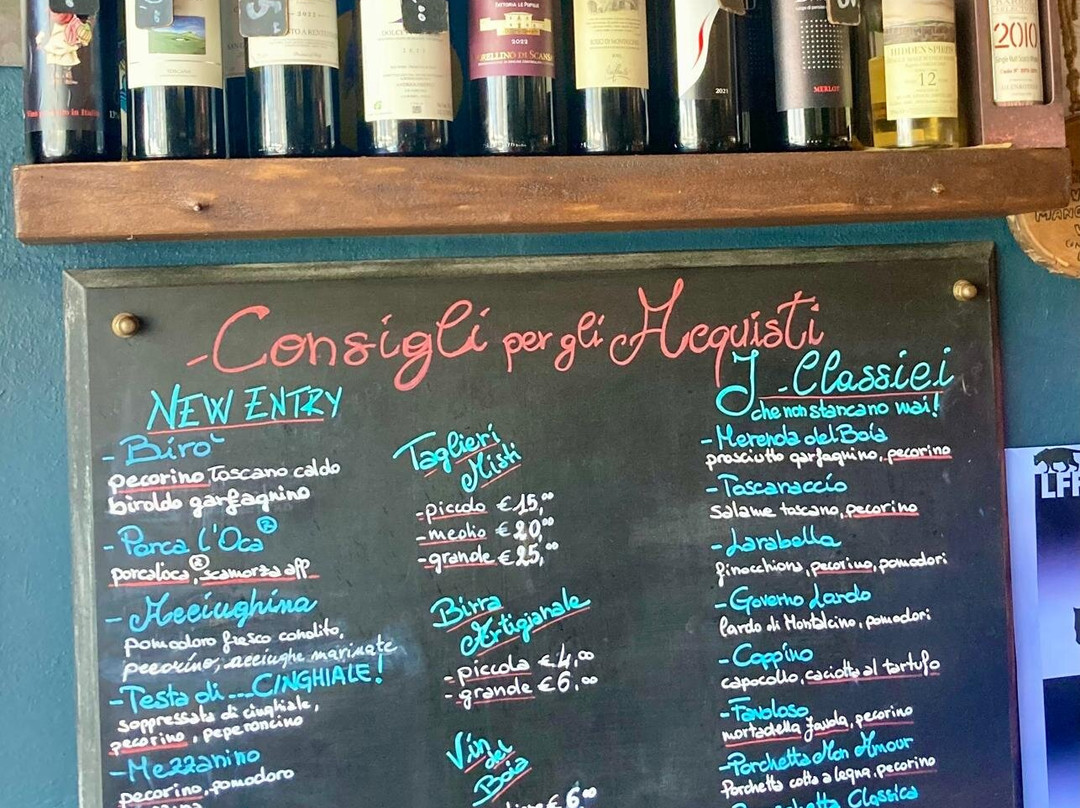 TOSCANA
FATTORIA LE PUPILLE
2022
MORELLINO DI SCANSANO
2021
MERLOT
HIDDEN SPIRITS
12
2010
Consigli per gli Acquisti
NEW ENTRY
- Birò
pecorino Toscano caldo
biroldo garfagnino
- Porca l'Oca®
porcaloca®, scamorza aff.
- Acciughina
pomodoro fresco condito,
pecorino, acciughe marinate
- Testa di ... CINGHIALE!
soppressata di cinghiale,
pecorino, peperoncino
- Mezzanino
pecorino, pomodoro
Taglieri
Misti
- piccolo € 15,00
- medio € 20,00
- grande € 25,00
Birra
Artigianale
- piccola € 4,00
- grande € 6,00
Vin
del
Boia
€ 6,00
I Classici
che non stancano mai!
- Merenda del Boia
prosciutto garfagnino, pecorino
- Toscanaccio
salame toscano, pecorino
- Larabella
finocchiona, pecorino, pomodori
- Governo Lardo
lardo di Montalcino, pomodori
- Coppino
capocollo, caciotta al tartufo
- Favoloso
mortadella favola, pecorino
- Porchetta Mon Amour
Porchetta cotta a legna, pecorino
Porchetta Classica
LFF